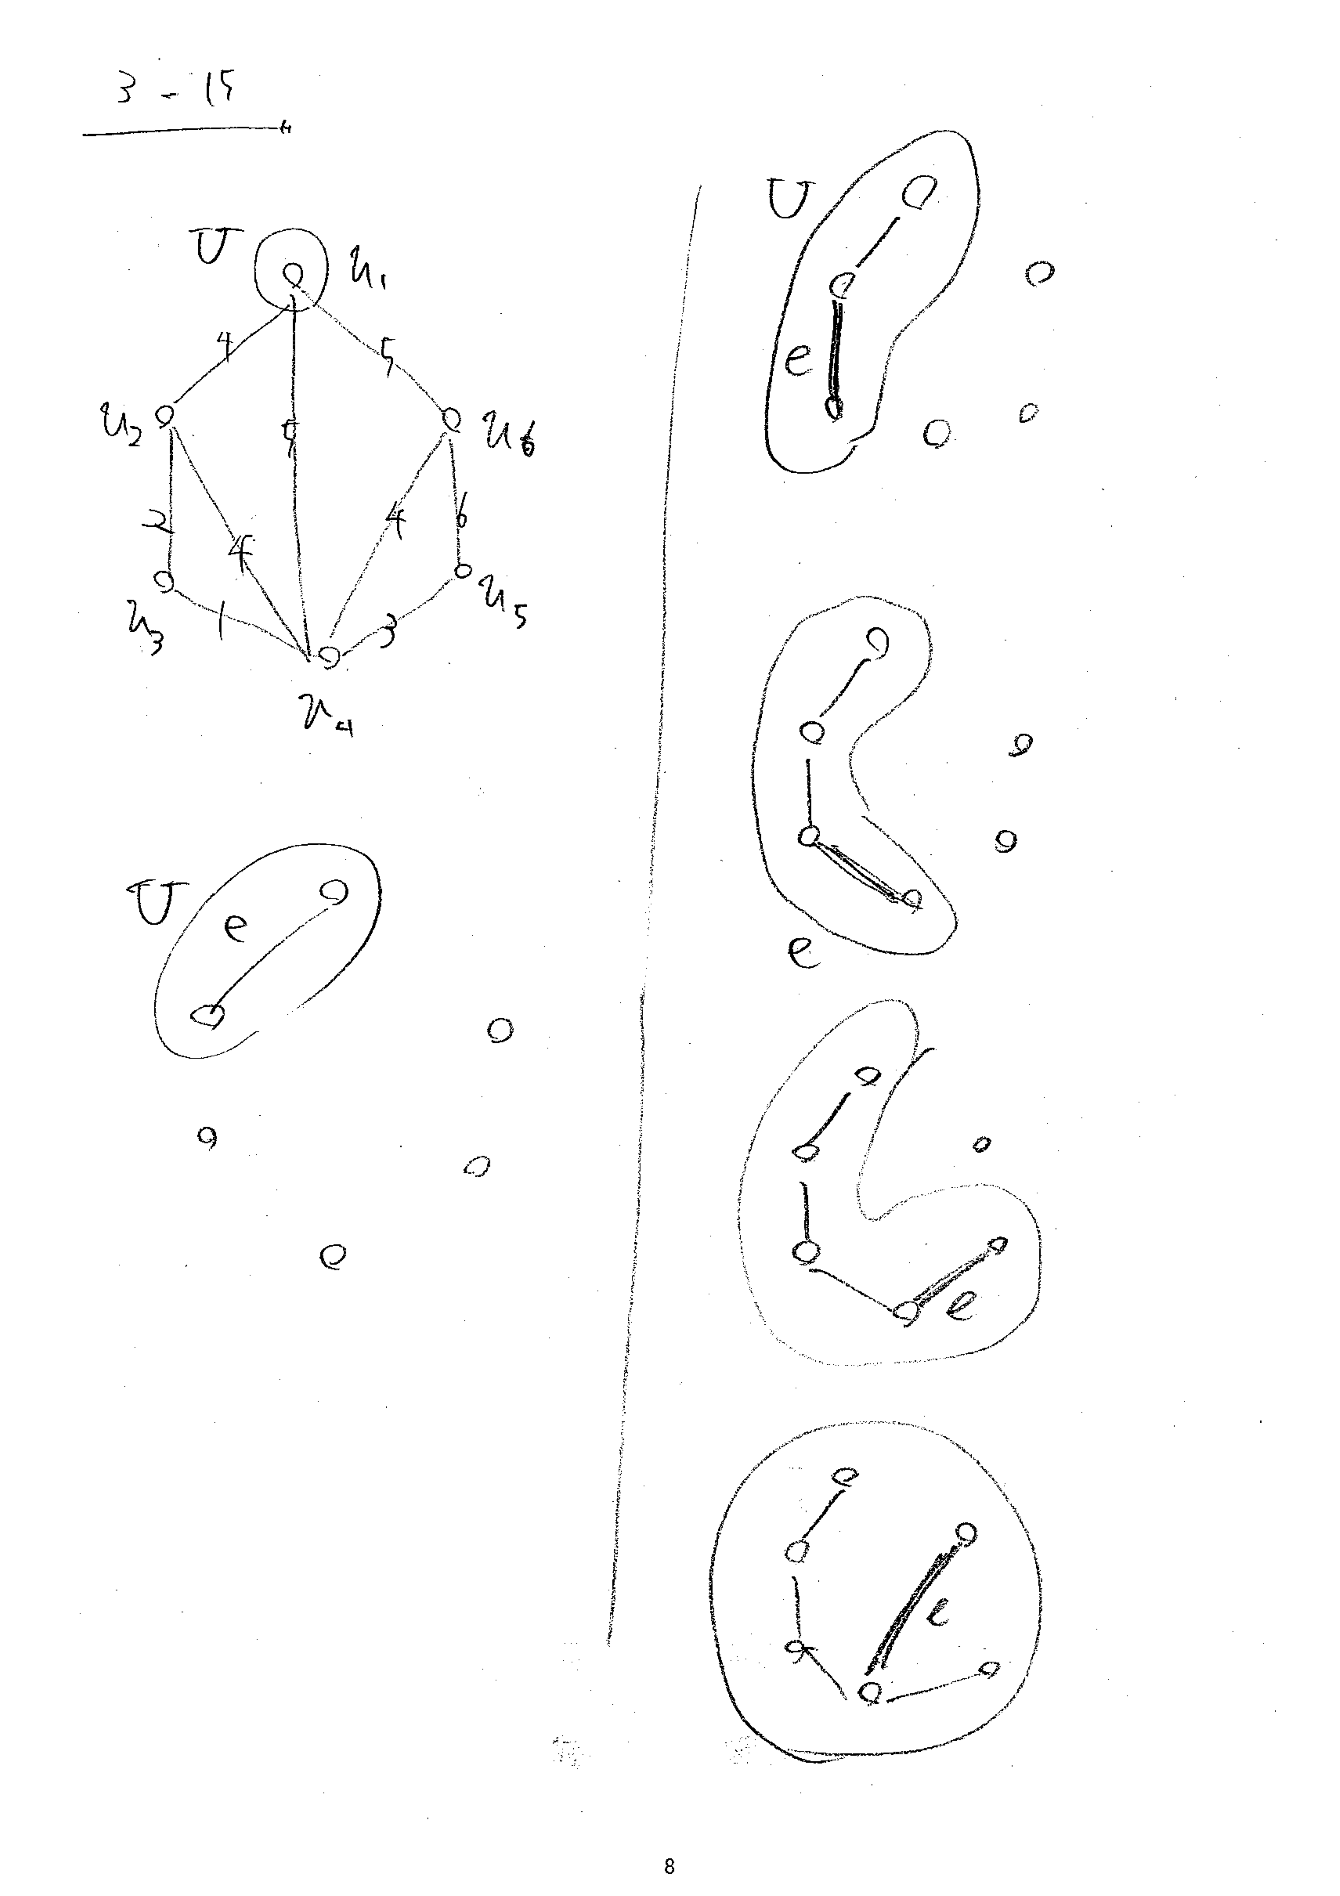 3 - 15
U
u₁
4
5
5
u₂
u₆
2
4
4
6
u₃
u₅
1
3
u₄
U
e
U
e
e
e
e
8